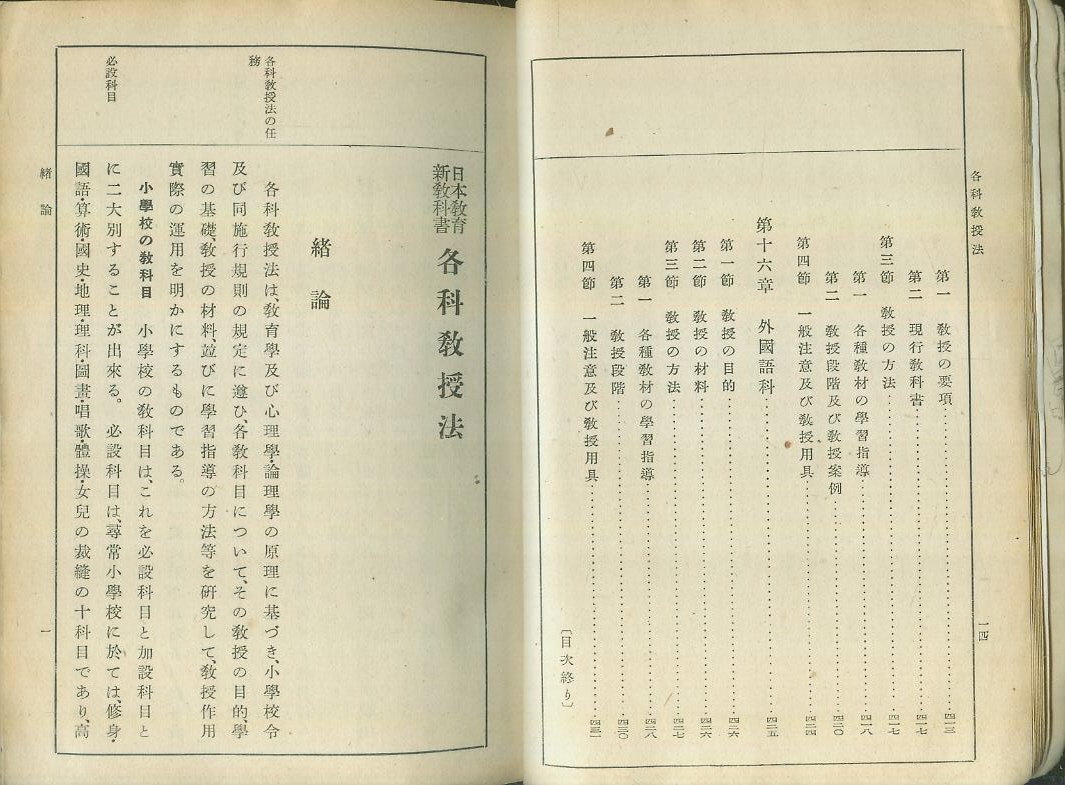 各科教授法
一四
第一　教授の要項……四一三
第二　現行教科書……四一七
第三節　教授の方法……四一七
第一　各種教材の學習指導……四一八
第二　教授段階及び教授案例……四二〇
第四節　一般注意及び教授用具……四二四
第十六章　外國語科……四二五
第一節　教授の目的……四二六
第二節　教授の材料……四二六
第三節　教授の方法……四二七
第一　各種教材の學習指導……四二八
第二　教授段階……四三〇
第四節　一般注意及び教授用具……四三一
〔目次終り〕
日本教育
新教科書
各科教授法
緒論
各科教授法の任
務
各科教授法は、教育學及び心理學・論理學の原理に基づき、小學校令
及び同施行規則の規定に遵ひ、各教科目について、その教授の目的、學
習の基礎、教授の材料、竝びに學習指導の方法等を研究して、教授作用
實際の運用を明かにするものである。
必設科目
小學校の教科目　小學校の教科目は、これを必設科目と加設科目と
に二大別することが出來る。必設科目は、尋常小學校に於ては、修身・
國語・算術・國史・地理・理科・圖畫・唱歌・體操・女兒の裁縫の十科目であり、高
緒論
一